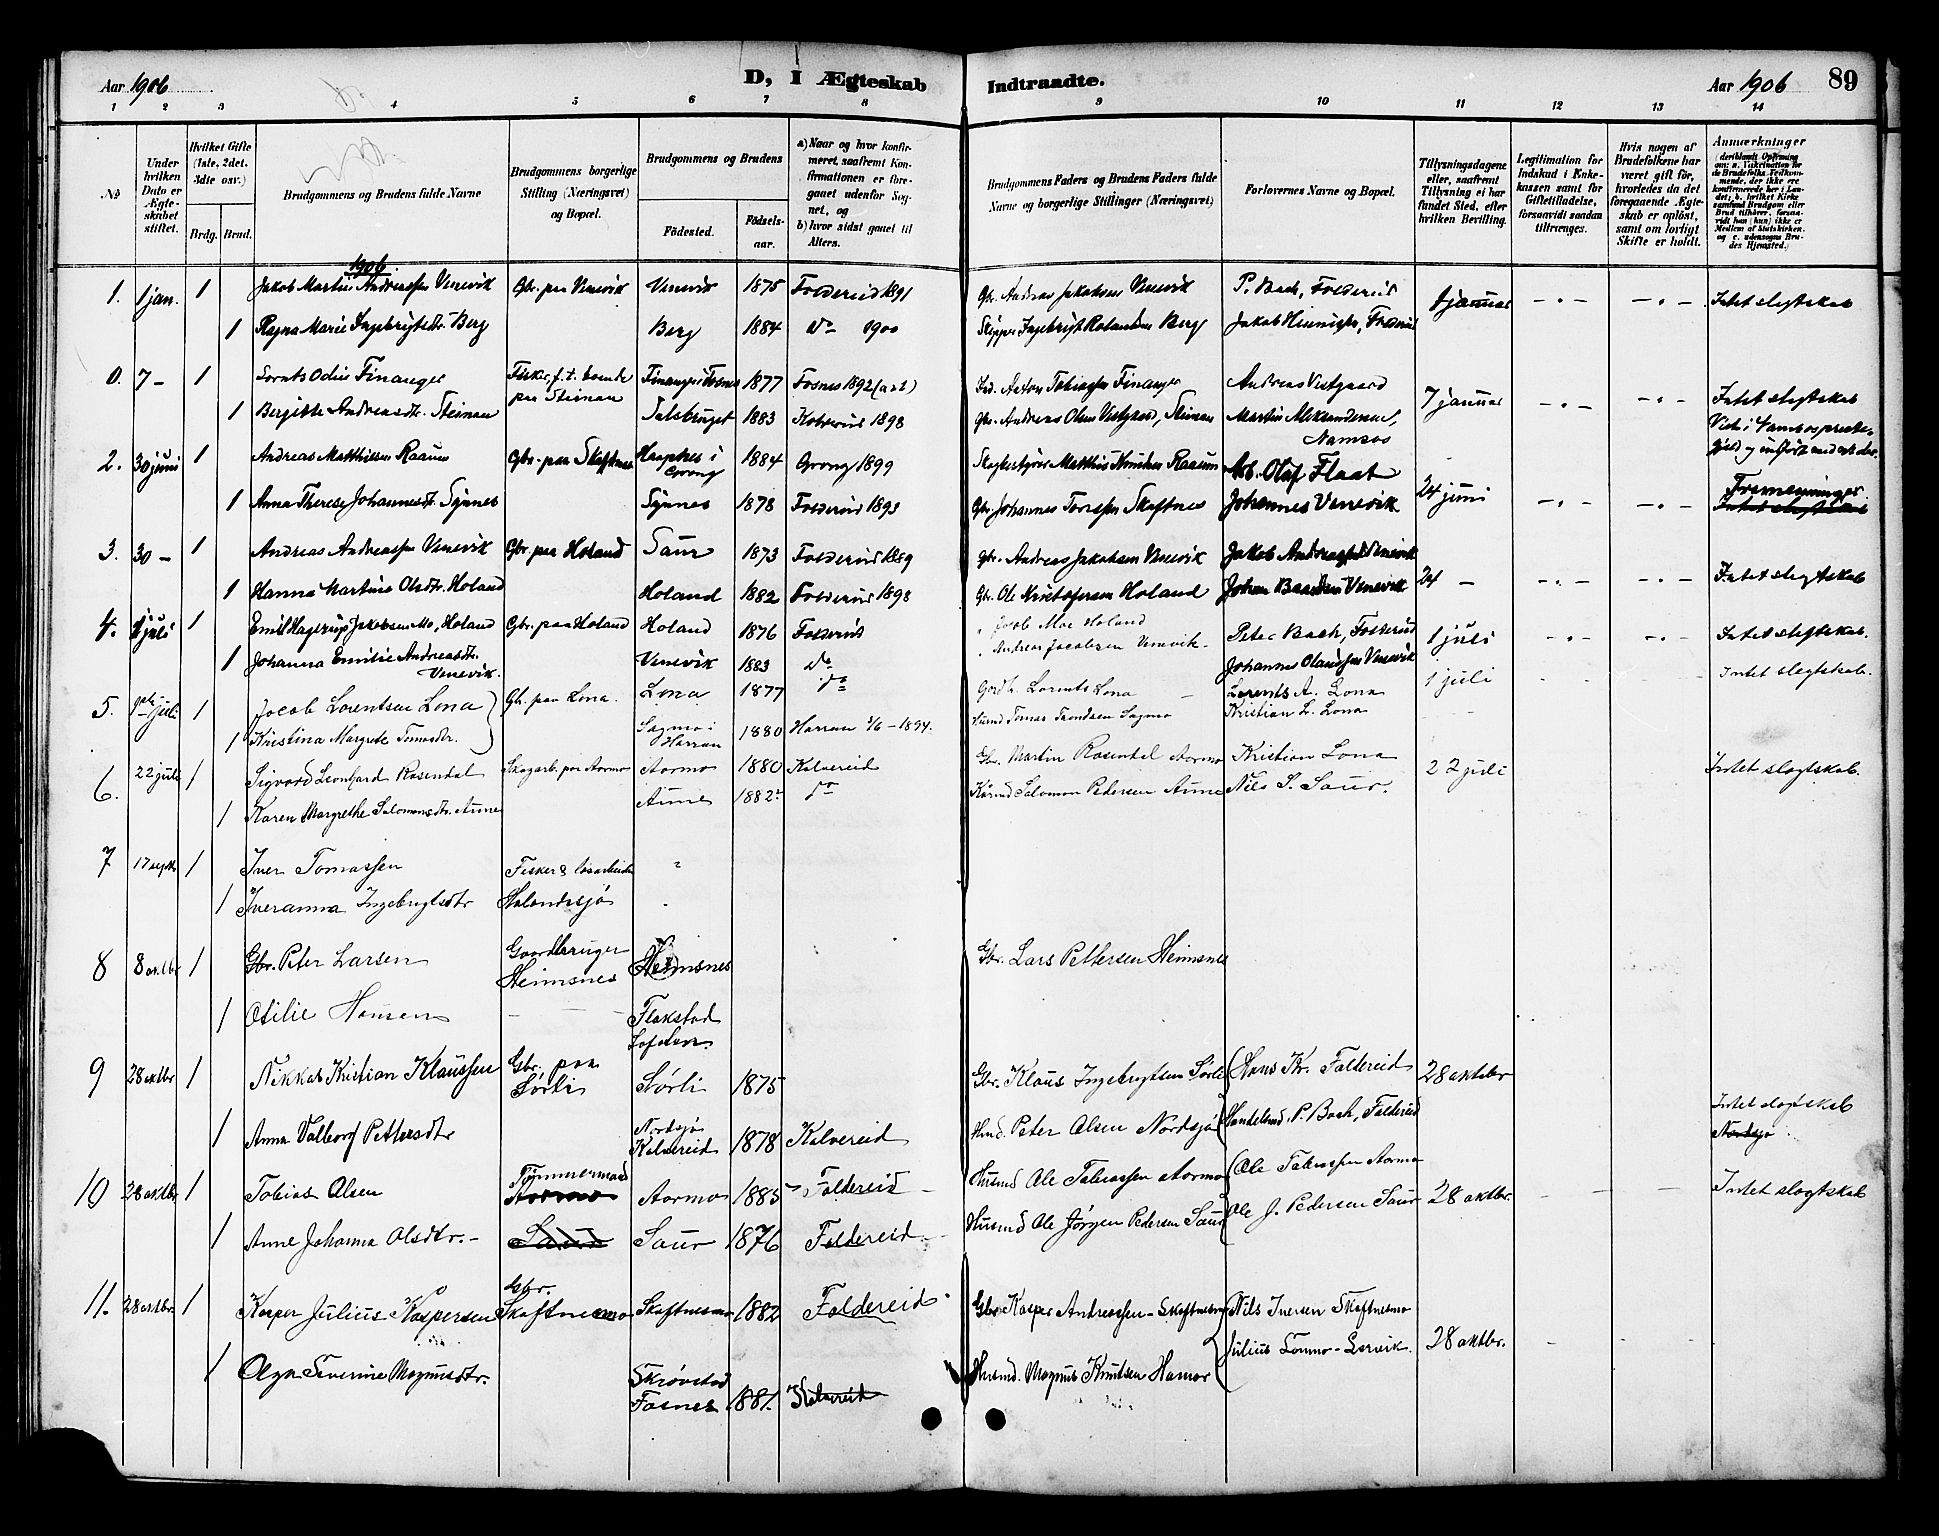 Aar 1906
D, I Ægteskab
Indtraadte.
Aar 1906
89
1 2 3 4 5 6 7 8 9 10 11 12 13 14
No
Under hvilken Dato er Ægteskabet stiftet.
Hvilket Gifte (1ste, 2det, 3die osv.)
Brdg. Brud.
Brudgommens og Brudens fulde Navne
Brudgommens borgerlige Stilling (Næringsvei) og Bopæl.
Brudgommens og Brudens
Fødested.
Fødselsaar.
a) Naar og hvor konfirmeret, saafremt Konfirmationen er foregaaet udenfor Sognet, og
b) hvor sidst gaaet til Alters.
Brudgommens Faders og Brudens Faders fulde Navne og borgerlige Stillinger (Næringsvei)
Forlovernes Navne og Bopæl.
Tillysningsdagene eller, saafremt Tillysning ei har fundet Sted, efter hvilken Bevilling.
Legitimation for Indskud i Enkekassen samt for Giftetilladelse, forsaavidt saadan tiltrænges.
Hvis nogen af Brudefolkene har været gift før, hvorledes da det foregaaende Ægteskab er opløst, samt om lovligt Skifte er holdt.
Anmærkninger
1906
1. 1 jan. 1 Jakob Martin Andreassen Venevik Gbr. paa Venevik Venevik 1875 Foldereid 1891 Gbr. Andreas Jakobsen Venevik P. Bach, Foldereid 1 januar - " - - " - Intet slegtskab
1 Ragna Marie Ingebrigtsdtr. Berg Berg 1884 do 1900 Skipper Ingebrigt Rolandsen Berg Jakob
0. 7 - 1 Odin Finanger Fisker, f. t. boende paa Steinan Finanger Fosnes 1877 Fosnes 1892 Finanger Andreas Vestgaard 7 januar - " - - " - Intet slegtskab
1 Bergitte Andreasdtr. Steinan 1883 Kolvereid 1898 Gbr. Andreas Olsen Vestgaard, Steinan Martin Aleksandersen, Namsos
2. 30 juni 1 Andreas Matthissen Raaum Gbr. paa Skaftnes i Grong 1884 Grong 1899 Matthis Raaum Arb. Olaf Flaat 24 juni - " - - " - Tremenninger
1 Anna Therese Johannesdtr. Synnes Synnes 1878 Foldereid 1893 Gbr. Johannes Skaftnes Johannes Venevik Intet slegtskab
3. 30 - 1 Andreas Andreassen Venevik Gbr. paa Holand Saur 1873 Foldereid 1889 Gbr. Andreas Jakobsen Venevik Jakob Andreassen Venevik 24 - - " - - " - Intet slegtskab
1 Hanna Martine Olsdtr. Holand Holand 1882 Foldereid 1898 Gbr. Ole Kristofersen Holand Johan Venevik
4. 1 juli 1 Emil Hagerup Jakobsen Mo, Holand Gbr. paa Holand Holand 1876 Foldereid " Jacob Moe Holand Peter Bach, Foldereid 1 juli - " - - " - Intet slegtskab.
1 Johanna Emilie Andreasdtr. Venevik. Venevik 1883 do " Andreas Jacobsen Venevik Johannes Olaussen Venevik
5. juli 1 Jacob Lorentsen Lona Gbr. paa Lona. Lona 1877 do Gordbr. Lorents Lona Lorents A. Lona 1 juli Intet slegtskab.
1 Kristina Margrete Tomasdtr. Sagmo i Harran 1880 Harran 3/6 - 1894. Husmd Tomas Trondsen Sagmo Kristian L. Lona
6. 22 juli 1 Sigvard Leonhard Rosendal Skogarb. paa Aarmo Aarmo 1880 Kolvereid Gbr. Martin Rosendal Aarmo Kristian Lona 22 juli Intet slegtskab.
1 Karen Margrethe Salomonsdtr. Aune Aune 1882 do Salomon Pedersen Aune Nils S. Saur.
7 17 septbr 1 Iver Tomassen Fisker & løsarbeider "
1 Iveranna Ingebrigtsdtr Holandssjø
8 8 oktbr 1 Gbr. Peter Larsen Gaardbruger Heimsnes Heimsnes Gbr. Lars Pettersen Heimsnes
1 Otilie Hansen Flakstad Lofoten.
9 28 oktbr 1 Nikkal Kristian Klaussen Gbr. paa Sørli Sørli 1875 Gbr. Klaus Ingebrigtsen Sørli Hans Kr. Foldereid 28 oktbr
1 Anna Valborg Pettersdtr Nordsjø Kolvereid 1878 Kolvereid Husmd. Peter Olsen Nordsjø Handelsmd. P. Bach, Foldereid Intet slegtskab Nordsjø
10 28 oktbr 1 Tobias Olsen Tømmermand Aarmo Aarmo 1885 Foldereid Husmd Ole Tobiassen Aarmo Ole Tobiassen Aarmo 28 oktbr. Intet slegtskab
1 Anne Johanna Olsdtr. - Saur Saur 1876 Foldereid Husmd Ole Jørgen Pedersen Saur Ole J. Pedersen Saur
11. 28 oktbr. 1 Kasper Julius Kaspersen Gbr. Skaftnesmo Skaftnesmo 1882 Foldereid Gbr Kasper Andreassen - Skaftnesmo Nils Iversen Skaftnesmo 28 oktbr.
1 Olga Severine Magnusdtr. Skrøvstad Fosnes 1881. Kolvereid Husmd. Magnus Knutsen Hamar Julius